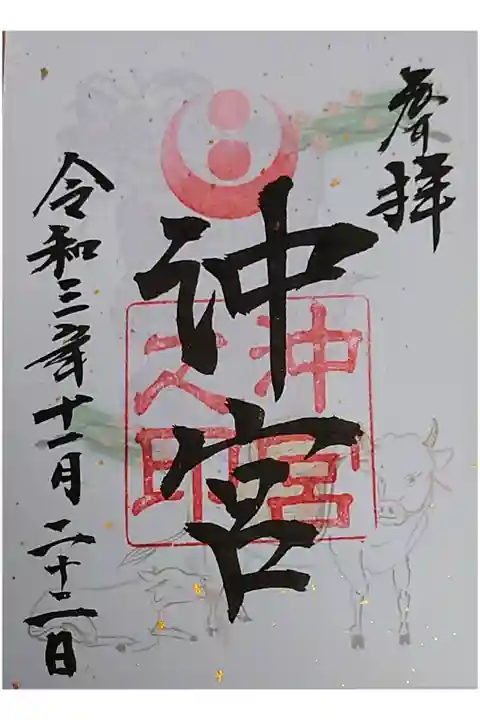 参拝
沖宮
沖宮
之印
令和三年十一月二十二日